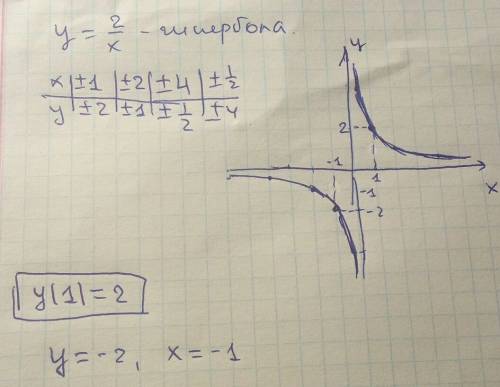 y = 2/x - гипербола.
x | ±1 | ±2 | ±4 | ±1/2
y | ±2 | ±1 | ±1/2 | ±4
y
2
-1
1
x
-1
-2
y(1) = 2
y = -2, x = -1